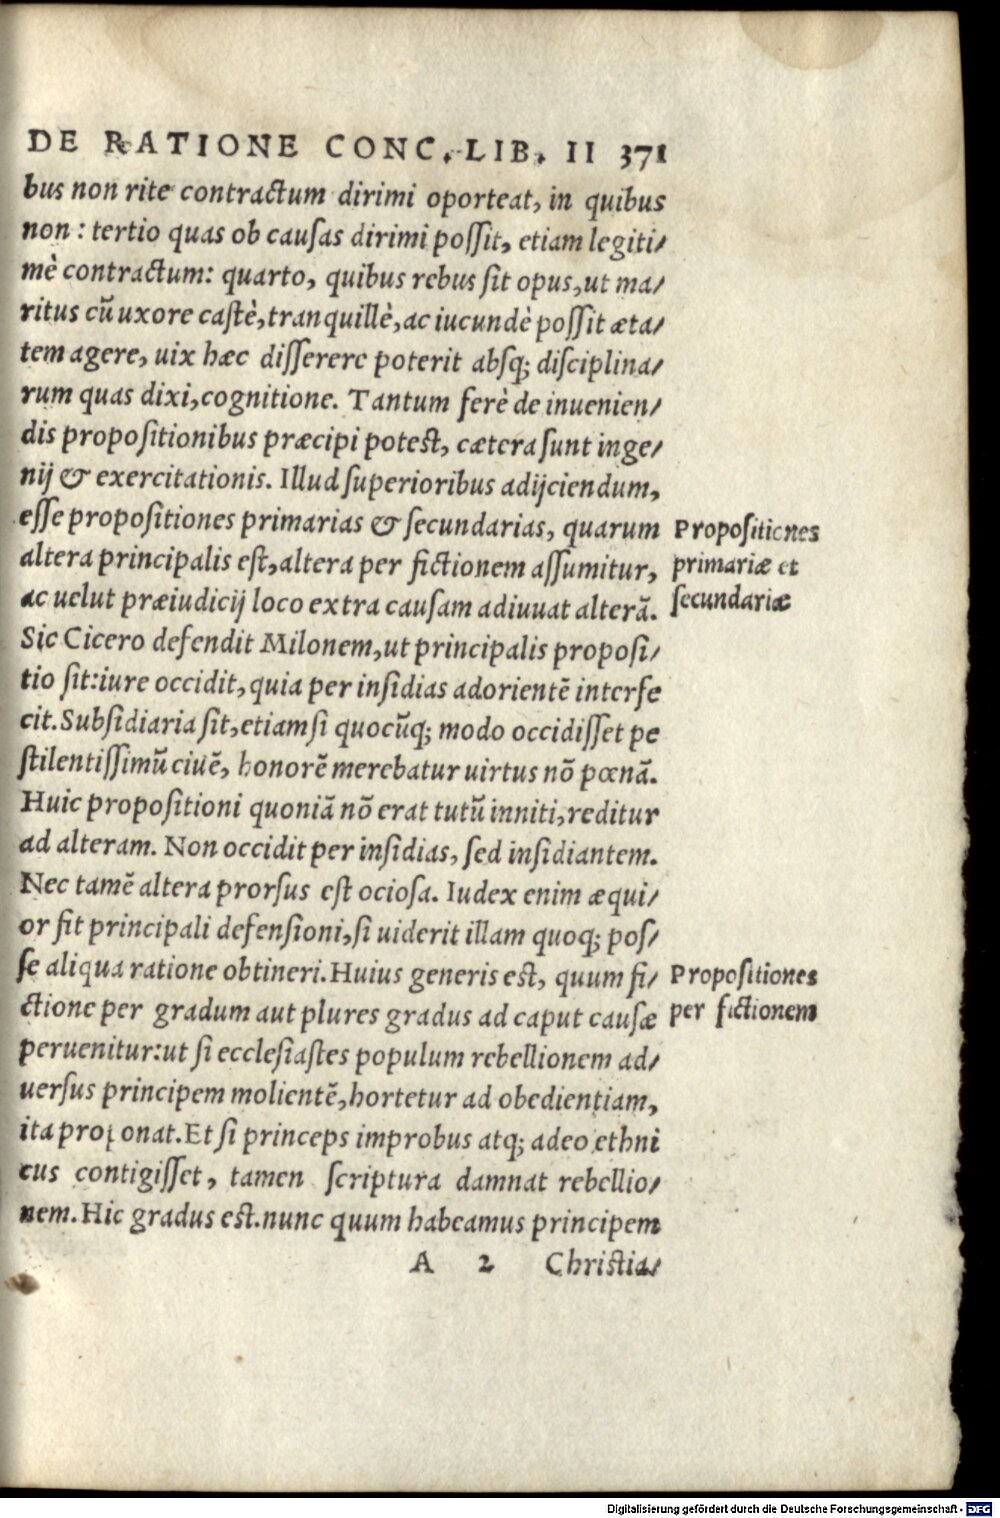 DE RATIONE CONC. LIB. II 371
bus non rite contractum dirimi oporteat, in quibus
non : tertio quas ob cauſas dirimi poſſit, etiam legiti/
mè contractum: quarto, quibus rebus ſit opus, ut ma/
ritus cū uxore caſtè, tranquillè, ac iucundè poſſit æta/
tem agere, uix hæc diſſerere poterit abſq; diſciplina/
rum quas dixi, cognitione. Tantum ferè de inuenien/
dis propoſitionibus præcipi poteſt, cætera ſunt inge/
nij & exercitationis. Illud ſuperioribus adijciendum,
eſſe propoſitiones primarias & ſecundarias, quarum
Propoſitiones
altera principalis eſt, altera per fictionem aſſumitur,
primariæ et
ac uelut præiudicij loco extra cauſam adiuuat alterā.
ſecundariæ
Sic Cicero defendit Milonem, ut principalis propoſi/
tio ſit: iure occidit, quia per inſidias adorientē interfe
cit. Subſidiaria ſit, etiamſi quocūq; modo occidiſſet pe
ſtilentiſſimū ciuē, honorē merebatur uirtus nō pœnā.
Huic propoſitioni quoniā nō erat tutū inniti, reditur
ad alteram. Non occidit per inſidias, ſed inſidiantem.
Nec tamē altera prorſus eſt ocioſa. Iudex enim æqui/
or fit principali defenſioni, ſi uiderit illam quoq; poſ/
ſe aliqua ratione obtineri. Huius generis eſt, quum fi/
Propoſitiones
ctione per gradum aut plures gradus ad caput cauſæ
per fictionem
peruenitur: ut ſi eccleſiaſtes populum rebellionem ad/
uerſus principem molientē, hortetur ad obedientiam,
ita proponat. Et ſi princeps improbus atq; adeo ethni
cus contigiſſet, tamen ſcriptura damnat rebellio/
nem. Hic gradus eſt. nunc quum habeamus principem
A 2 Chriſtia/
Digitalisierung gefördert durch die Deutsche Forschungsgemeinschaft - DFG